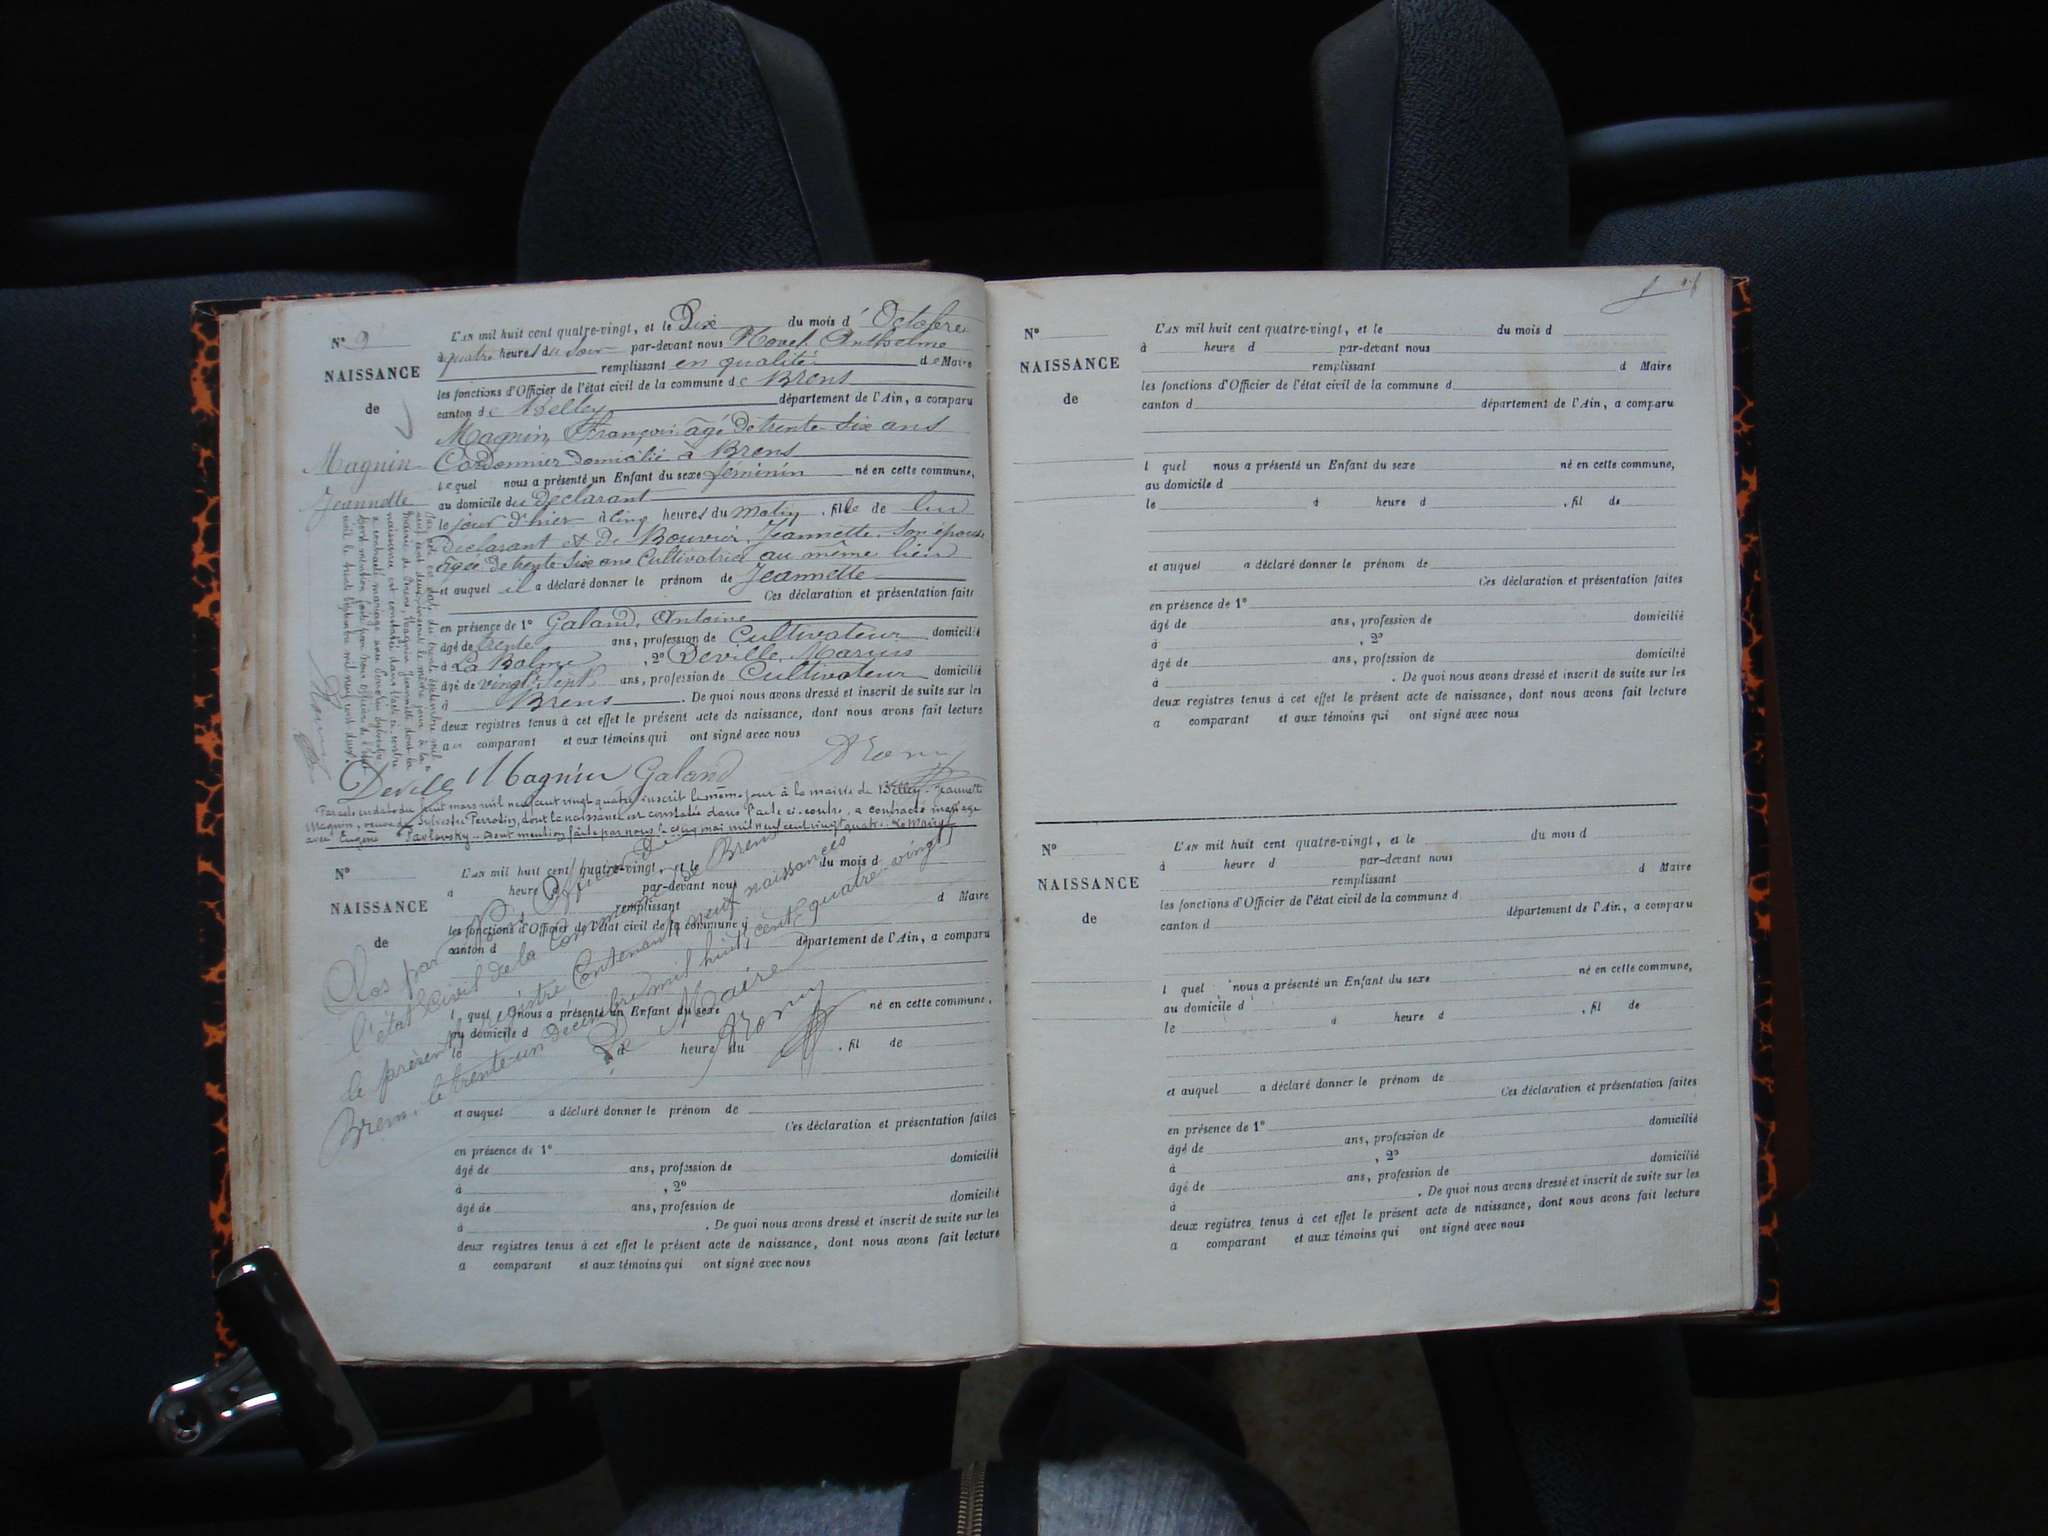 N° 9
NAISSANCE
de
Magnin
Jeannette
L'AN mil huit cent quatre-vingt, et le Dix du mois d'Octobre
à quatre heures du soir par-devant nous Anthelme
remplissant en qualité de Maire
les fonctions d'Officier de l'état civil de la commune de Brens
canton de Belley département de l'Ain, a comparu
Magnin, François âgé de trente six ans
Cordonnier domicilié à Brens
lequel nous a présenté un Enfant du sexe féminin né en cette commune,
au domicile du déclarant
le jour d'hier à cinq heures du matin, fille de lui
déclarant et de Bouvier, Jeannette, son épouse
âgée de trente six ans Cultivatrice au même lieu
et auquel il a déclaré donner le prénom de Jeannette
Ces déclaration et présentation faites
en présence de 1° Galand, Antoine
âgé de trente ans, profession de Cultivateur domicilié
à La Balme, 2° Deville, Marius
âgé de vingt sept ans, profession de Cultivateur domicilié
à Brens. De quoi nous avons dressé et inscrit de suite sur les
deux registres tenus à cet effet le présent acte de naissance, dont nous avons fait lecture
au comparant et aux témoins qui ont signé avec nous
Deville Magnin Galand
Par acte en date du huit mars mil neuf cent vingt quatre inscrit le même jour à la mairie de Belley, Jeannette
Magnin, veuve de Sylvestre Perrotin, dont la naissance est constatée dans l'acte ci-contre, a contracté mariage
avec Eugène Pavlovsky. Dont mention faite par nous le cinq mai mil neuf cent vingt quatre. Le Maire
N°
NAISSANCE
de
L'AN mil huit cent quatre-vingt, et le du mois d
à heure d par-devant nous
remplissant d Maire
les fonctions d'Officier de l'état civil de la commune d
canton d département de l'Ain, a comparu
l quel nous a présenté un Enfant du sexe né en cette commune,
au domicile d
le à heure du, fil de
et auquel a déclaré donner le prénom de
Ces déclaration et présentation faites
en présence de 1°
âgé de ans, profession de domicilié
à, 2°
âgé de ans, profession de domicilié
à. De quoi nous avons dressé et inscrit de suite sur les
deux registres tenus à cet effet le présent acte de naissance, dont nous avons fait lecture
a comparant et aux témoins qui ont signé avec nous
Clos par Nous Officier de
l'état Civil de la Commune de Brens
le présent registre Contenant neuf naissances
Brens, le trente-un décembre mil huit cent quatre-vingt
Le Maire
N°
NAISSANCE
de
L'AN mil huit cent quatre-vingt, et le du mois d
à heure d par-devant nous
remplissant d Maire
les fonctions d'Officier de l'état civil de la commune d
canton d département de l'Ain, a comparu
l quel nous a présenté un Enfant du sexe né en cette commune,
au domicile d
le à heure d, fil de
et auquel a déclaré donner le prénom de
Ces déclaration et présentation faites
en présence de 1°
âgé de ans, profession de domicilié
à, 2°
âgé de ans, profession de domicilié
à. De quoi nous avons dressé et inscrit de suite sur les
deux registres tenus à cet effet le présent acte de naissance, dont nous avons fait lecture
a comparant et aux témoins qui ont signé avec nous
N°
NAISSANCE
de
L'AN mil huit cent quatre-vingt, et le du mois d
à heure d par-devant nous
remplissant d Maire
les fonctions d'Officier de l'état civil de la commune d
canton d département de l'Ain, a comparu
l quel nous a présenté un Enfant du sexe né en cette commune,
au domicile d
le à heure d, fil de
et auquel a déclaré donner le prénom de
Ces déclaration et présentation faites
en présence de 1°
âgé de ans, profession de domicilié
à, 2°
âgé de ans, profession de domicilié
à. De quoi nous avons dressé et inscrit de suite sur les
deux registres tenus à cet effet le présent acte de naissance, dont nous avons fait lecture
a comparant et aux témoins qui ont signé avec nous